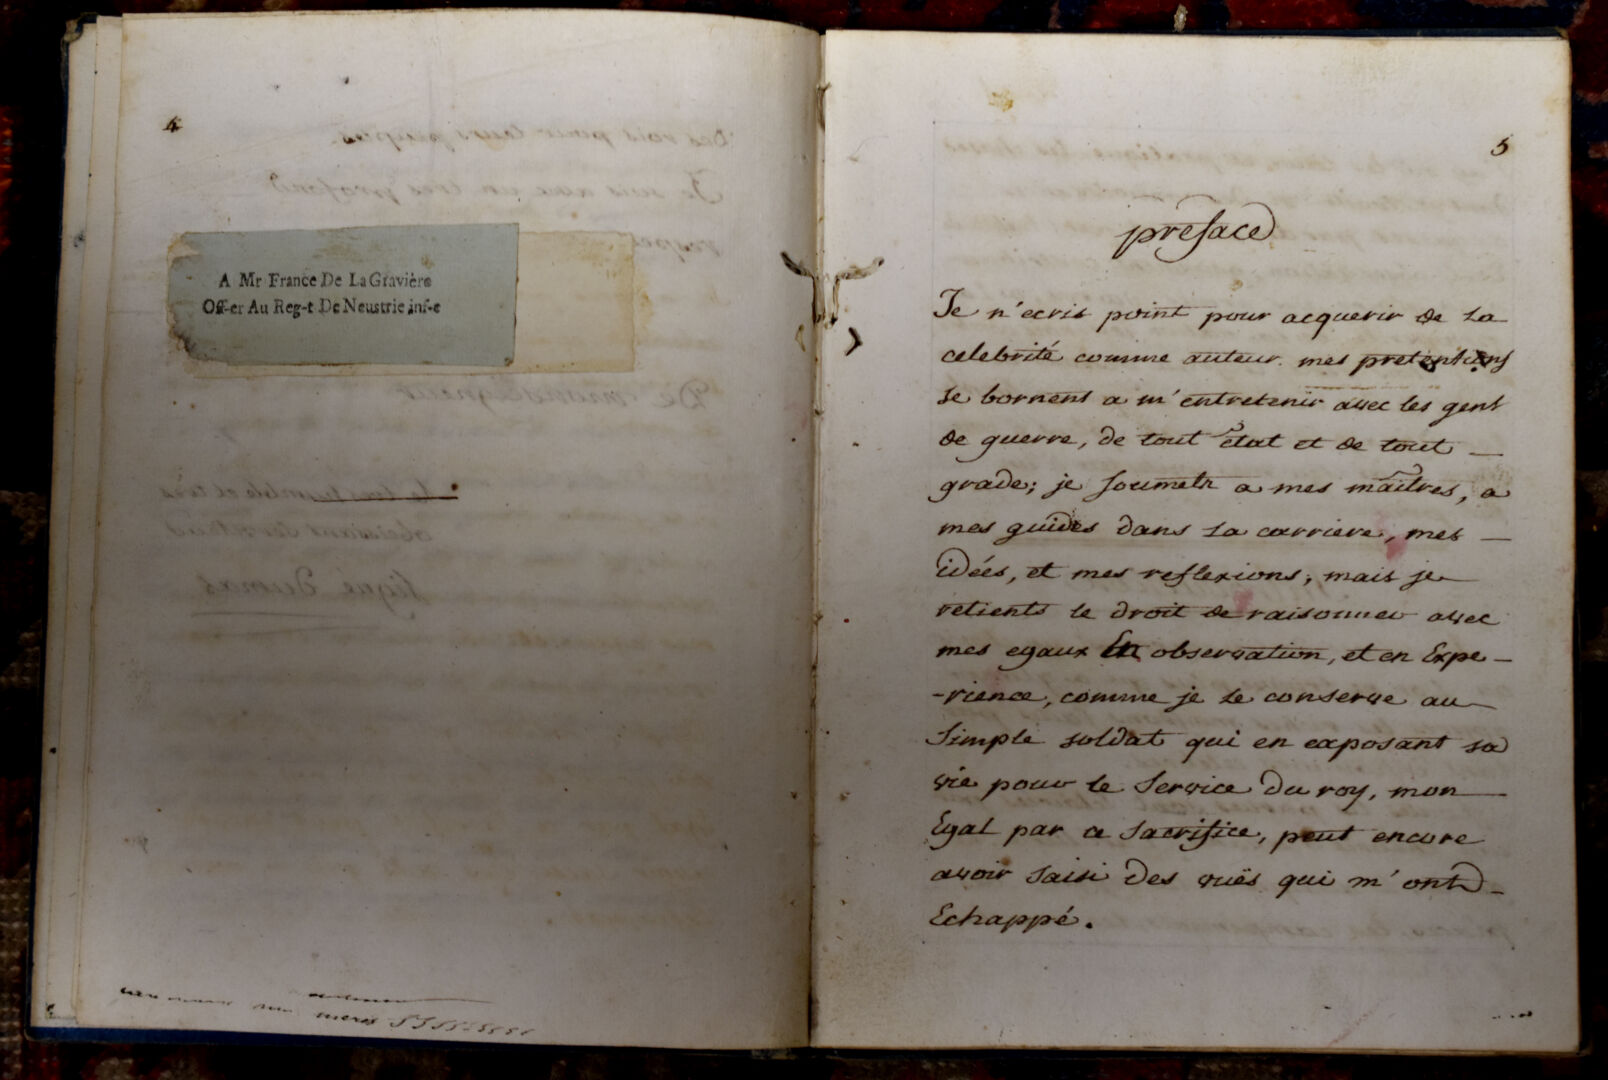 4
A Mr France De La Gravière
Off-er Au Reg-t De Neustrie inf-e
5
preface
Je n'ecris point pour acquerir de la
celebrité comme auteur. mes pretentions
se bornent a m'entretenir avec les gens
de guerre, de tout état et de tout
grade; je soumets a mes maîtres, a
mes guides dans la carriere, mes
idées, et mes reflexions; mais je
retients le droit de raisonner avec
mes egaux En observation, et en Expe-
-rience, comme je le conserve au
simple soldat qui en exposant sa
vie pour le service du roy, mon
Egal par ce sacrifice, peut encore
avoir saisi des vuës qui m'ont
Echappé.